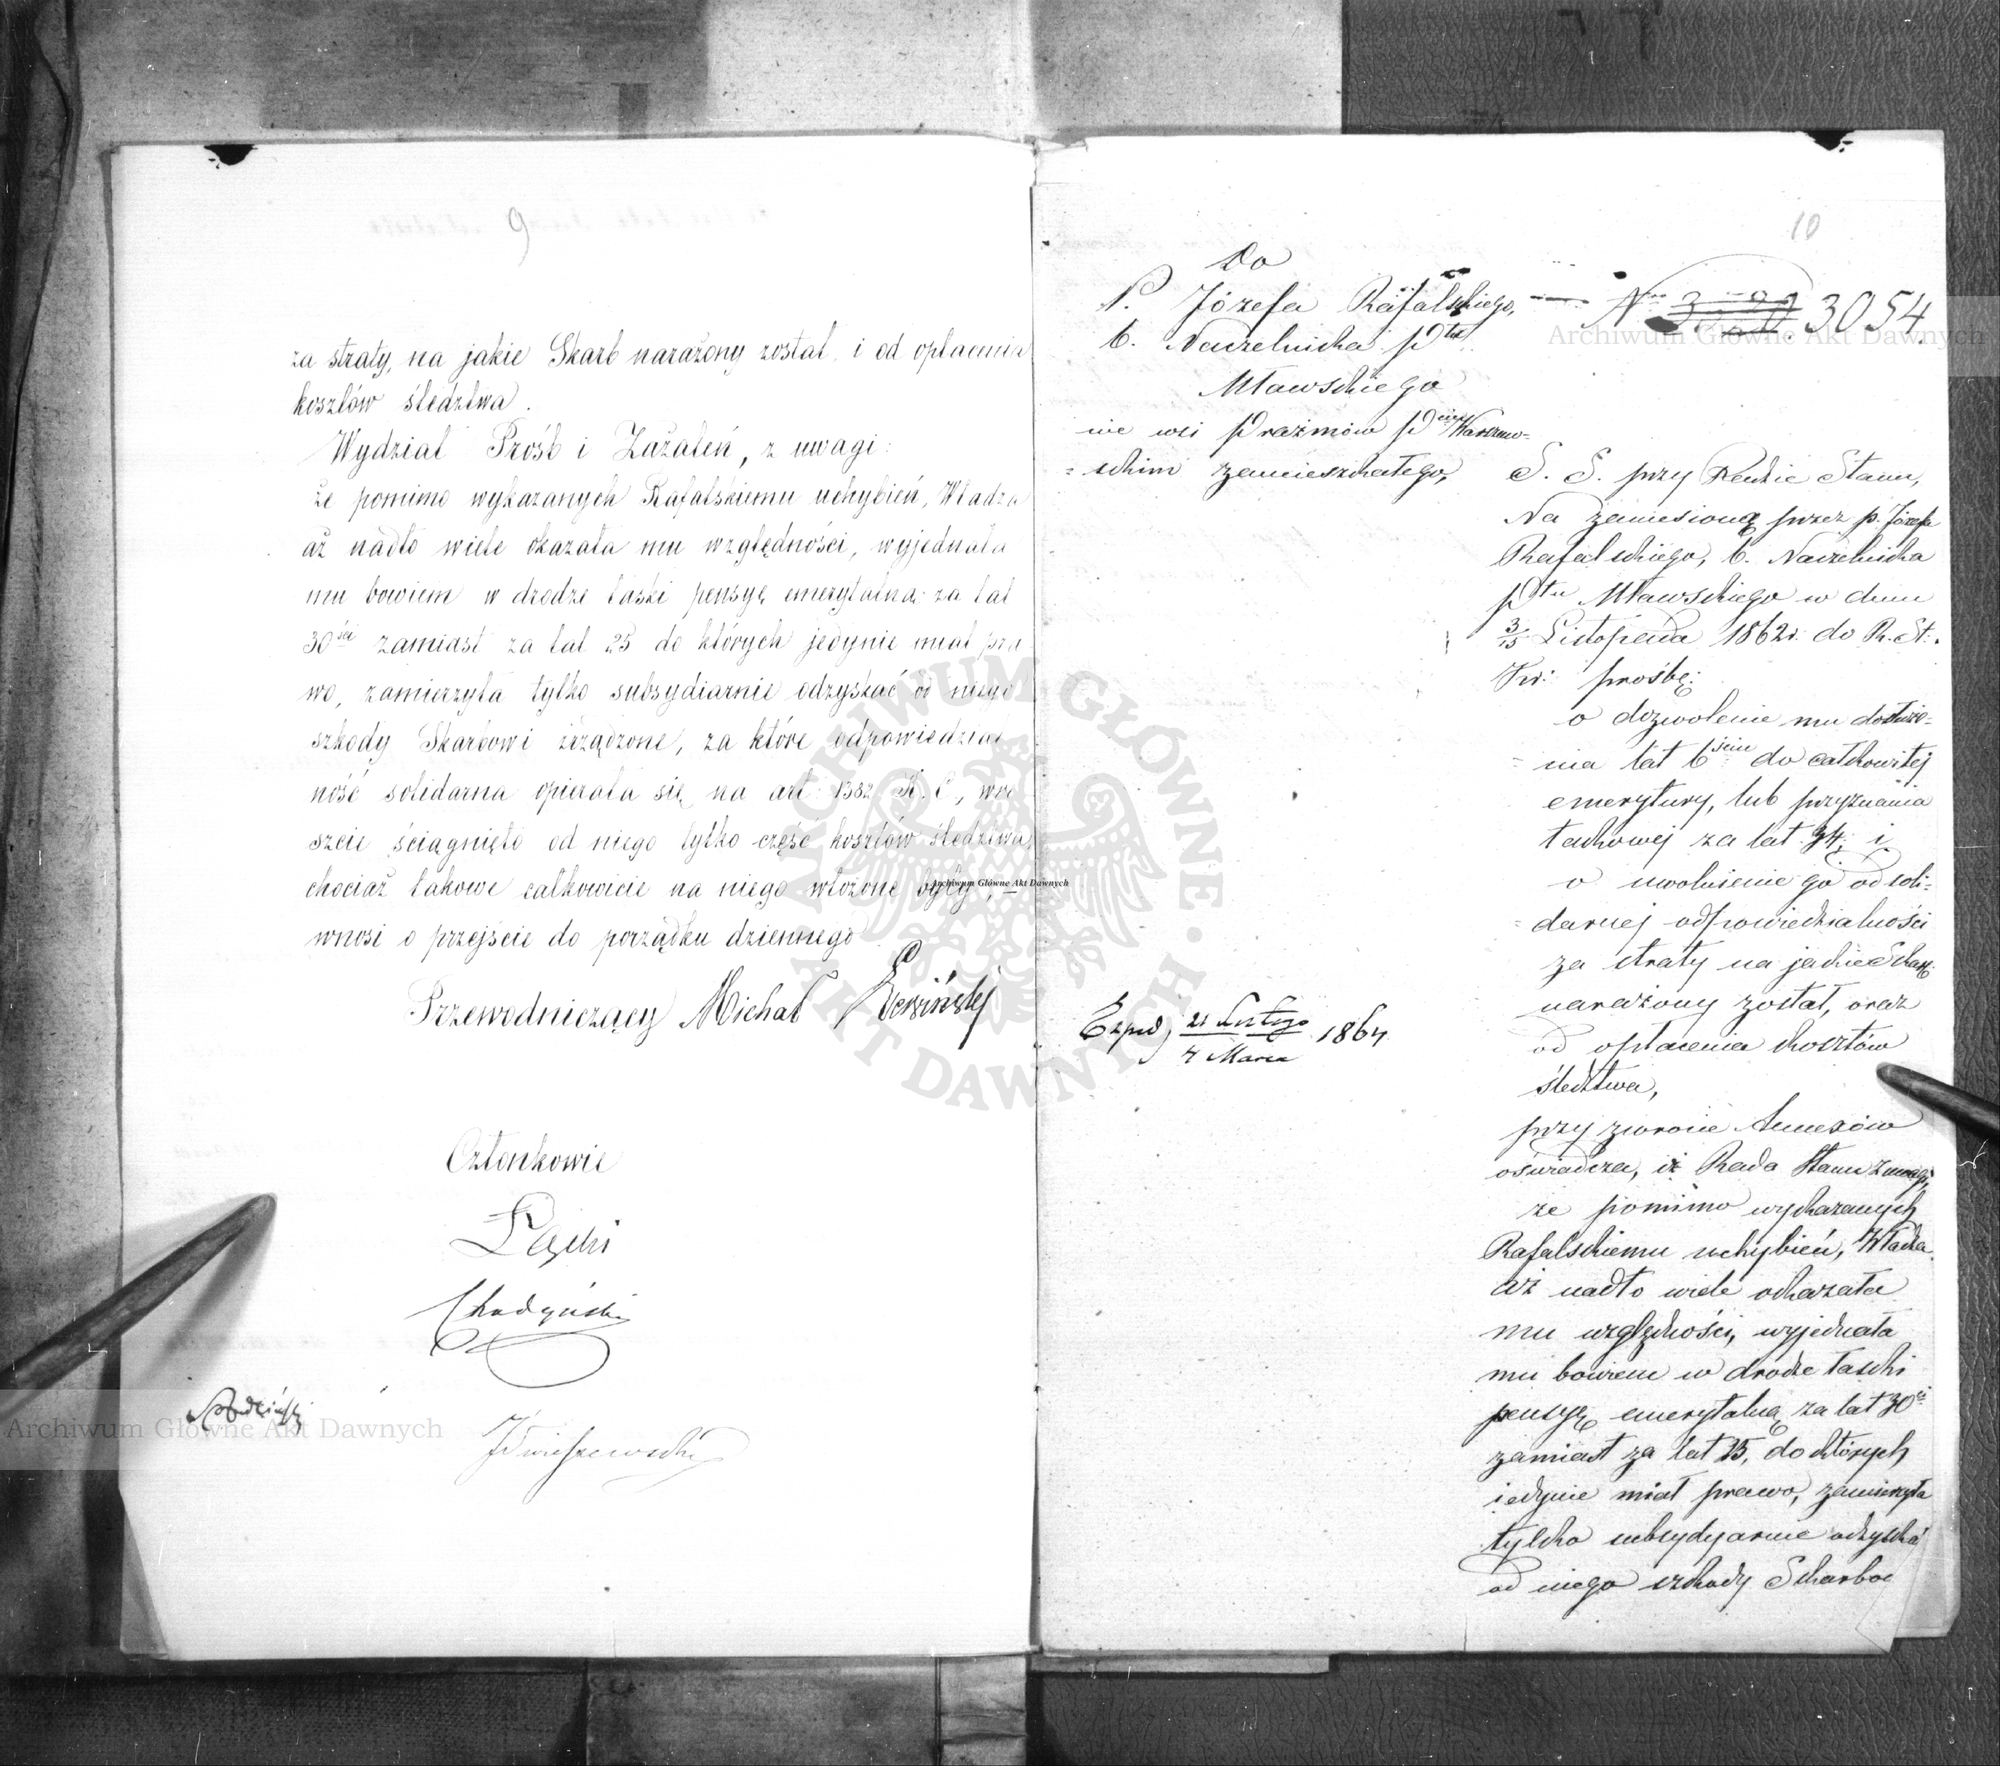 9
za straty, na jakie Skarb narażony został i od opłacenia
kosztów śledztwa.
Wydział Próśb i Zażaleń, z uwagi:
że pomimo wykazanych Rafalskiemu uchybień, Władza
aż nadto wiele okazała mu względności, wyjednała
mu bowiem w drodze łaski pensyę emerytalną za lat
30ści zamiast za lat 25 do których jedynie miał pra
wo, zamierzyła tylko subsydiarnie odzyskać od niego
szkody Skarbowi zrządzone, za które odpowiedzial
ność solidarna opierała się na art: 1382 K. C., wre
szcie ściągnięto od niego tylko część kosztów śledztwa,
chociaż takowe całkowicie na niego włożone były,
wnosi o przejście do porządku dziennego
Przewodniczący Michał
Członkowie
Łącki
Chodyński
10
Do
P. Józefa Rafalskiego,
b. Naczelnika Ptu
Mławskiego
we wsi Prażmów Pcie Warszaw=
=skim zamieszkałego,
Nro 3054
S. S. przy Radzie Stanu,
Na zaniesioną przez p. Józefa
Rafalskiego, b. Naczelnika
Ptu Mławskiego w dniu
3/15 Listopada 1862 r. do R. St:
Kr: prośbę:
o dozwolenie mu dosłuże=
=nia lat 6ciu do całkowitej
emerytury, lub przyznania
takowej za lat 34; i
o uwolnienie go od soli=
=darnej odpowiedzialności
za straty na jakie Skarb
narażony został, oraz
od opłacenia kosztów
śledztwa,
przy zwrocie Annexów
oświadcza, iż Rada Stanu z uwagi,
że pomimo wykazanych
Rafalskiemu uchybień, Władza
aż nadto wiele okazała
mu względności, wyjednała
mu bowiem w drodze łaski
pensyę emerytalną za lat 30ci
zamiast za lat 25, do których
jedynie miał prawo, zamierzyła
tylko subsydyarnie odzyskać
od niego szkody Skarbo
Exped: 21 Lutego / 4 Marca 1864
Archiwum Główne Akt Dawnych
Archiwum Główne Akt Dawnych
Archiwum Główne Akt Dawnych
ARCHIWUM GŁÓWNE AKT DAWNYCH